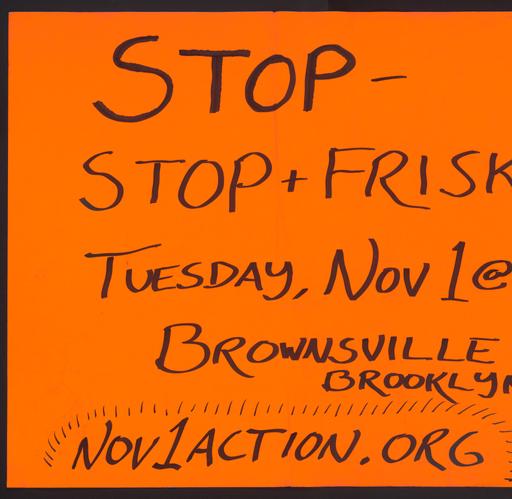 STOP-
STOP + FRISK
TUESDAY, NOV 1 @
BROWNSVILLE
BROOKLYN
NOV1ACTION.ORG